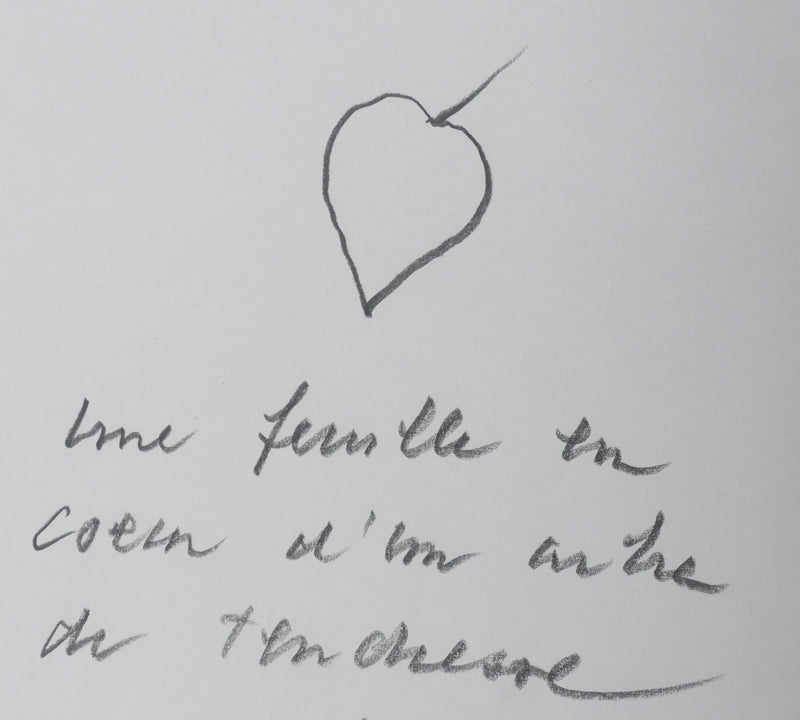 une feuille en
coeur d'un arbre
de tendresse